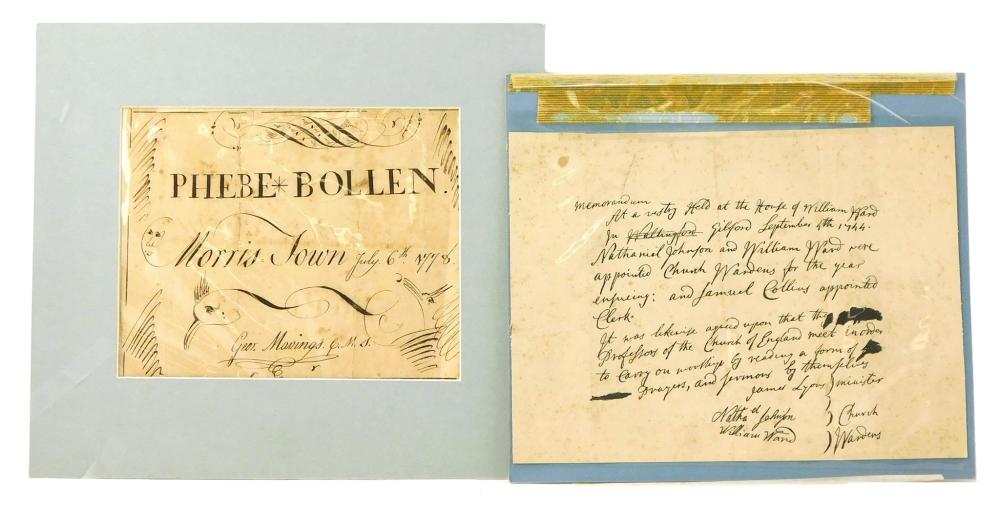 PHEBE * BOLLEN.
Morris-Town July. 6th. 1778
Geor. Mavings.
memorandum
At a vestry Held at the House of William Ward
In Wallingford Gilford September 4th 1744.
Nathaniel Johnson and William Ward were
appointed Church Wardens for the year
ensueing: and Samuel Collins appointed
Clerk.
It was likewise agreed upon that the
Professors of the Church of England meet in order
to Carry on worship by reading a form of
Prayers, and sermons by themselves
James Lyons minister
Nathad Johnson ) Church
William Ward ) Wardens